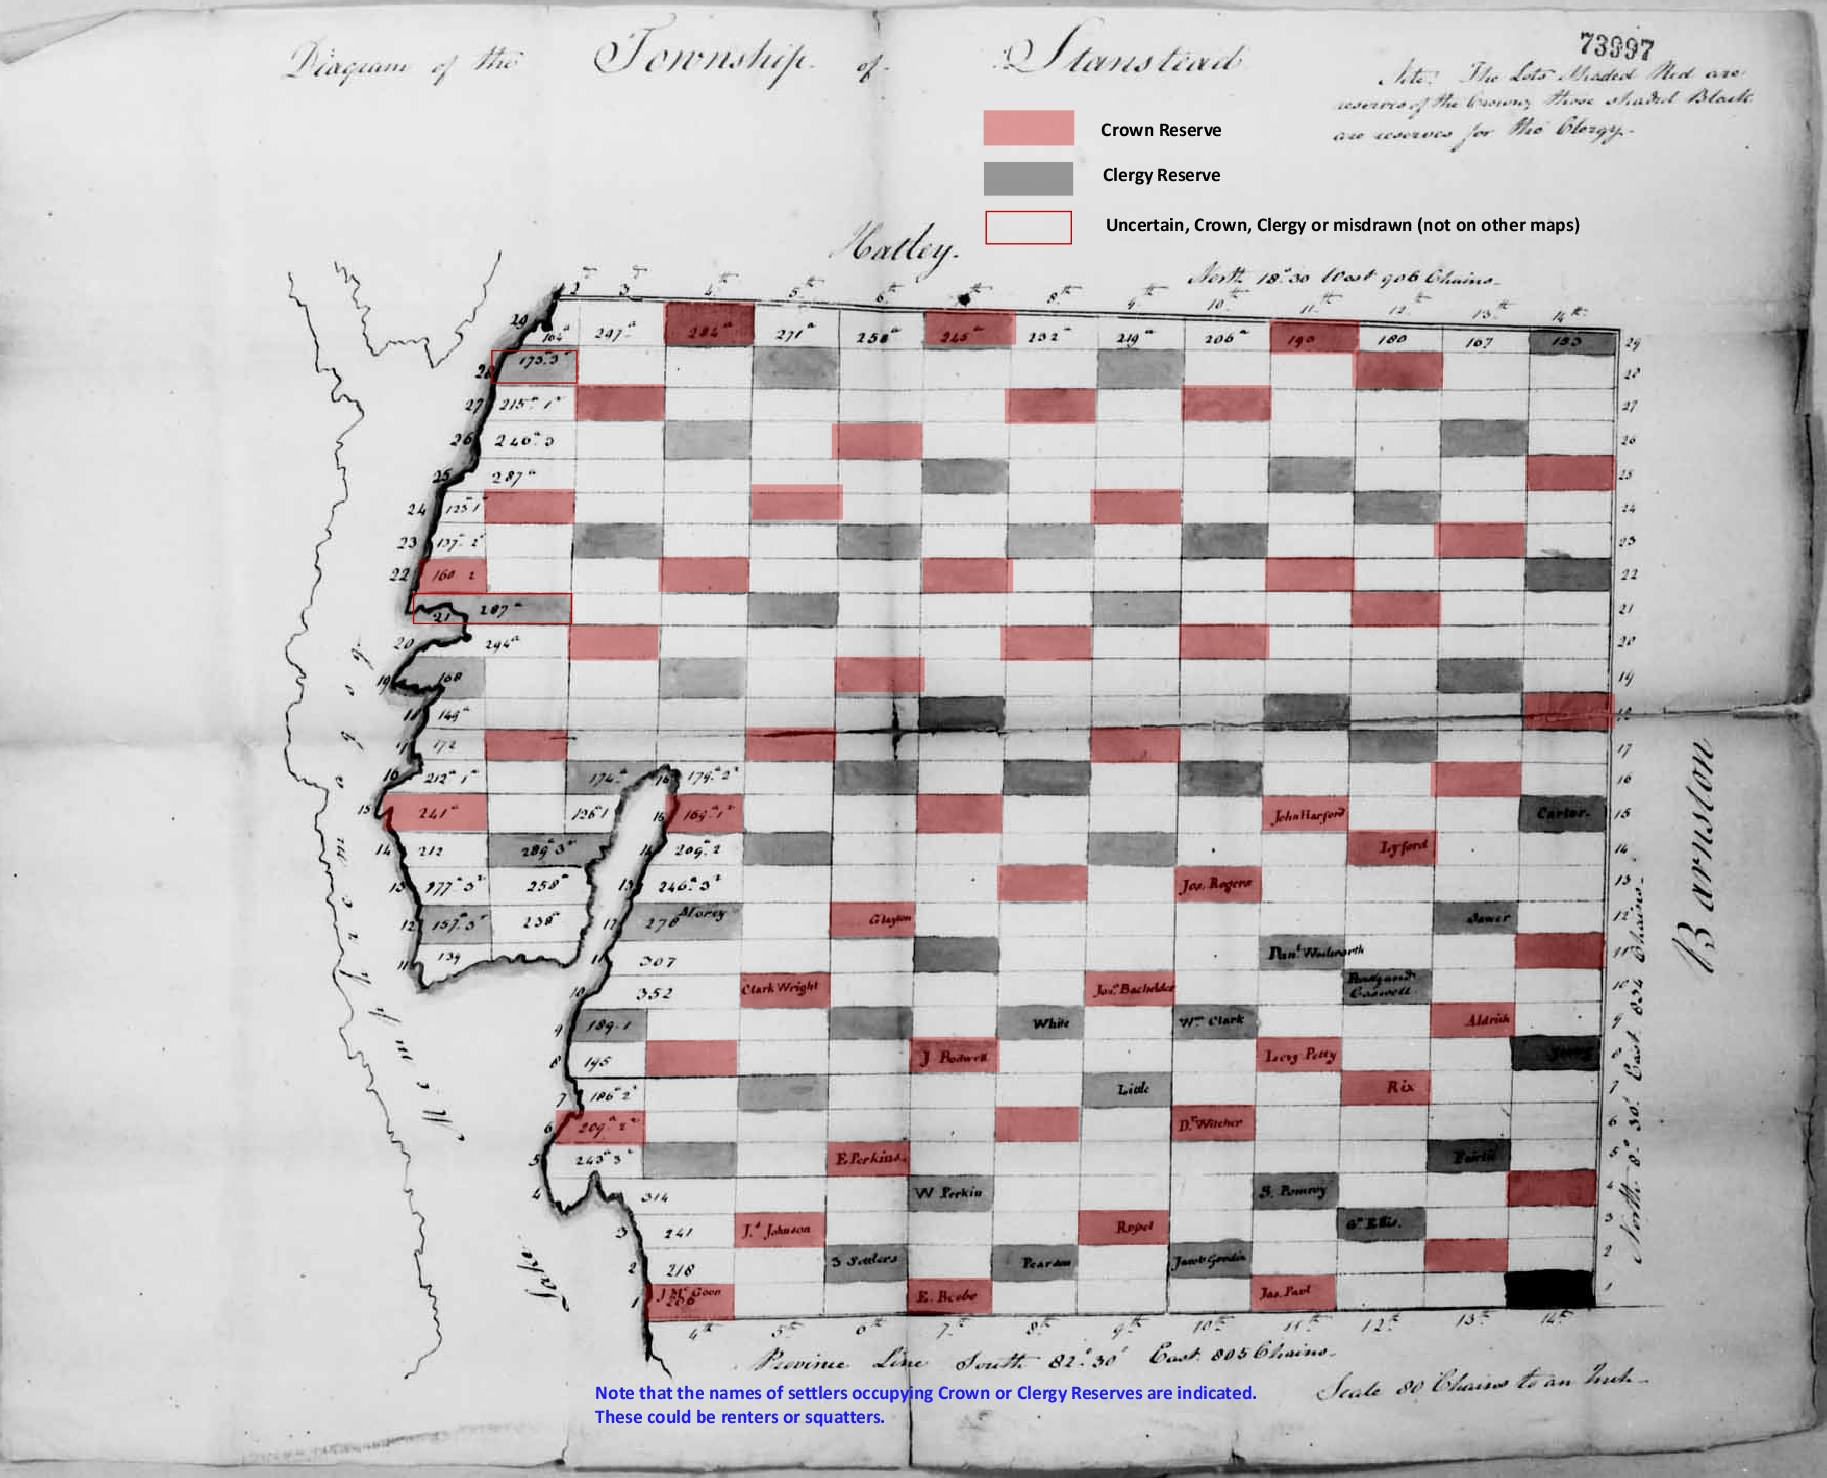 73997
Diagram of the Township of Stanstead
Note: The Lots Shaded Red are
reserves of the Crown, those shaded Black
are reserves for the Clergy.
Crown Reserve
Clergy Reserve
Uncertain, Crown, Clergy or misdrawn (not on other maps)
Hatley.
North 18°30 West 906 Chains
2 3 4th 5th 6th 8th 9th 10th 11th 12th 13th 14th
29 164a 297a 284a 271a 258a 245a 232a 219a 206a 193 180 167 153 29
28 173.3 28
27 215a 1r 27
26 246a.3 26
25 287a 25
24 123 1 24
23 137.2 23
22 160 2 22
21 287a 21
20 294a 20
19 168 19
149a
172 17
16 212a 1r 174a 16 179a.2r 16
15 241a 126.1 169a.1r John Harford Carter. 15
14 212 289a 3r 14 209a.2 Lyford 14
13 277a 3r 258a 13 246a.3r Jos. Rogers 13
12 157.3r 238a 276 Morey Clayton Sawer 12
11 139 307 Danl. Wadsworth 11
10 352 Clark Wright Jos. Bachelder Caswell 10
9 189.1 White Wm Clark Aldrich 9
8 195 J Bodwell Levey Petty 8
7 186a 2r Little Rix 7
6 209a 2r Dr Witcher 6
5 243a 3r E Perkins 5
4 314 W Perkin S. Pomroy
3 241 J. Johnson Ropel Gr Ellis. 3
2 218 3 Settlers Pearson Jacob Gordin 2
1 J McGoon 206 E. Beebe Jas. Paul 1
4th 5th 6th 7th 8th 9th 10th 11th 12th 13th 14th
Province Line South 82°30' East 805 Chains
Lake Memphremagog
Barnston
North 8° 30' East 834 Chains
Scale 80 Chains to an Inch
Note that the names of settlers occupying Crown or Clergy Reserves are indicated.
These could be renters or squatters.